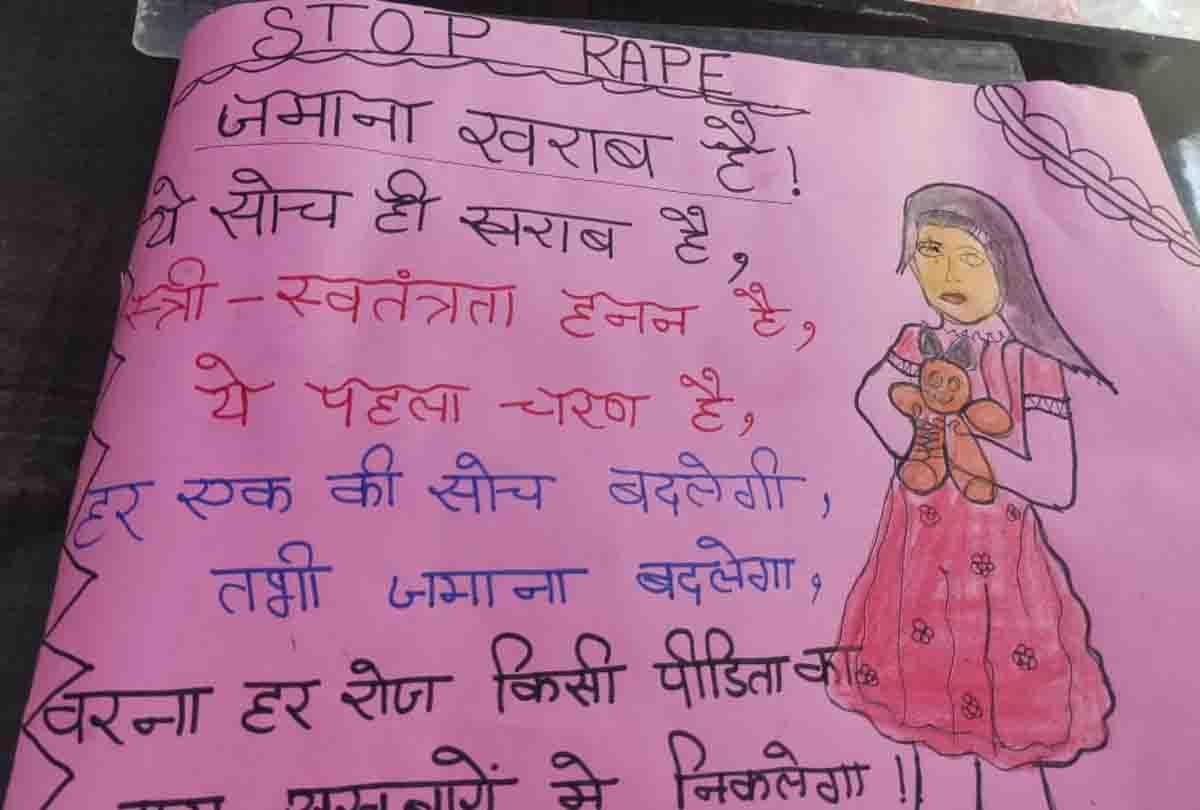 STOP RAPE
जमाना खराब है!
ये सोच ही खराब है,
स्त्री - स्वतंत्रता हनन है,
ये पहला चरण है,
हर एक की सोच बदलेगी,
तभी जमाना बदलेगा,
वरना हर रोज किसी पीडिता का
अखबारों मे निकलेगा !!